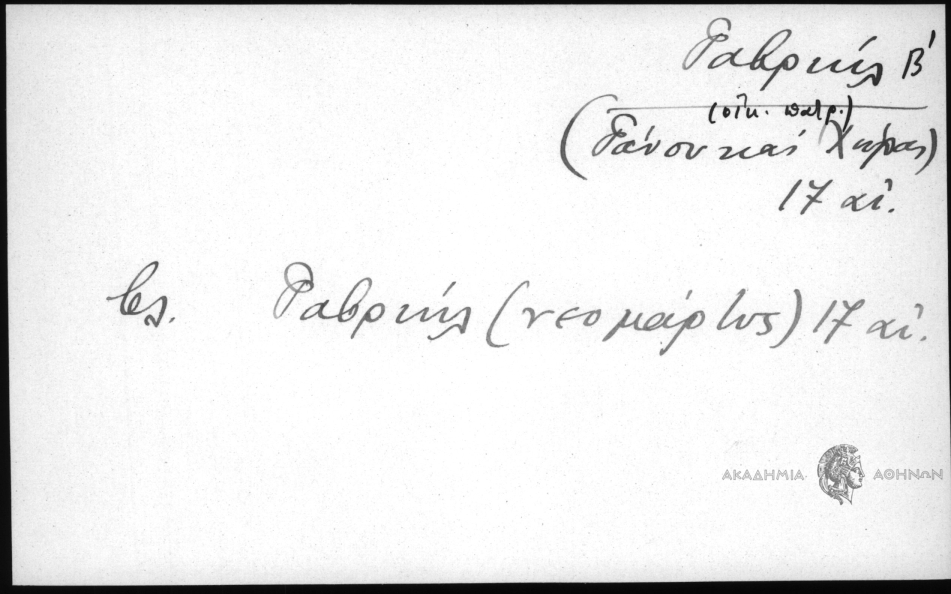 Γαβριήλ Β΄
(οἰκ. πατρ.)
(Γάνου καὶ Χώρας)
17 αἰ.
βλ. Γαβριήλ (νεομάρτυς) 17 αἰ.
ΑΚΑΔΗΜΙΑ ΑΘΗΝΩΝ